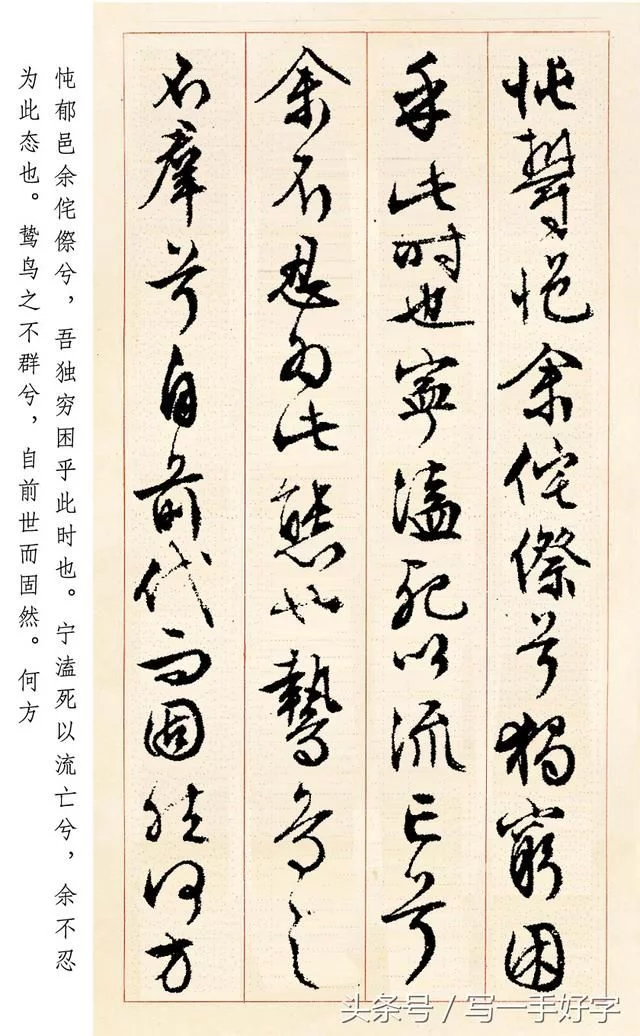 忳鬱悒余侘傺兮獨窮困
乎此時也寧溘死以流亡兮
余不忍為此態也鷙鳥之
不羣兮自前代而固然何方
忳郁邑余侘傺兮，吾独穷困乎此时也。宁溘死以流亡兮，余不忍
为此态也。鸷鸟之不群兮，自前世而固然。何方
头条号／写一手好字